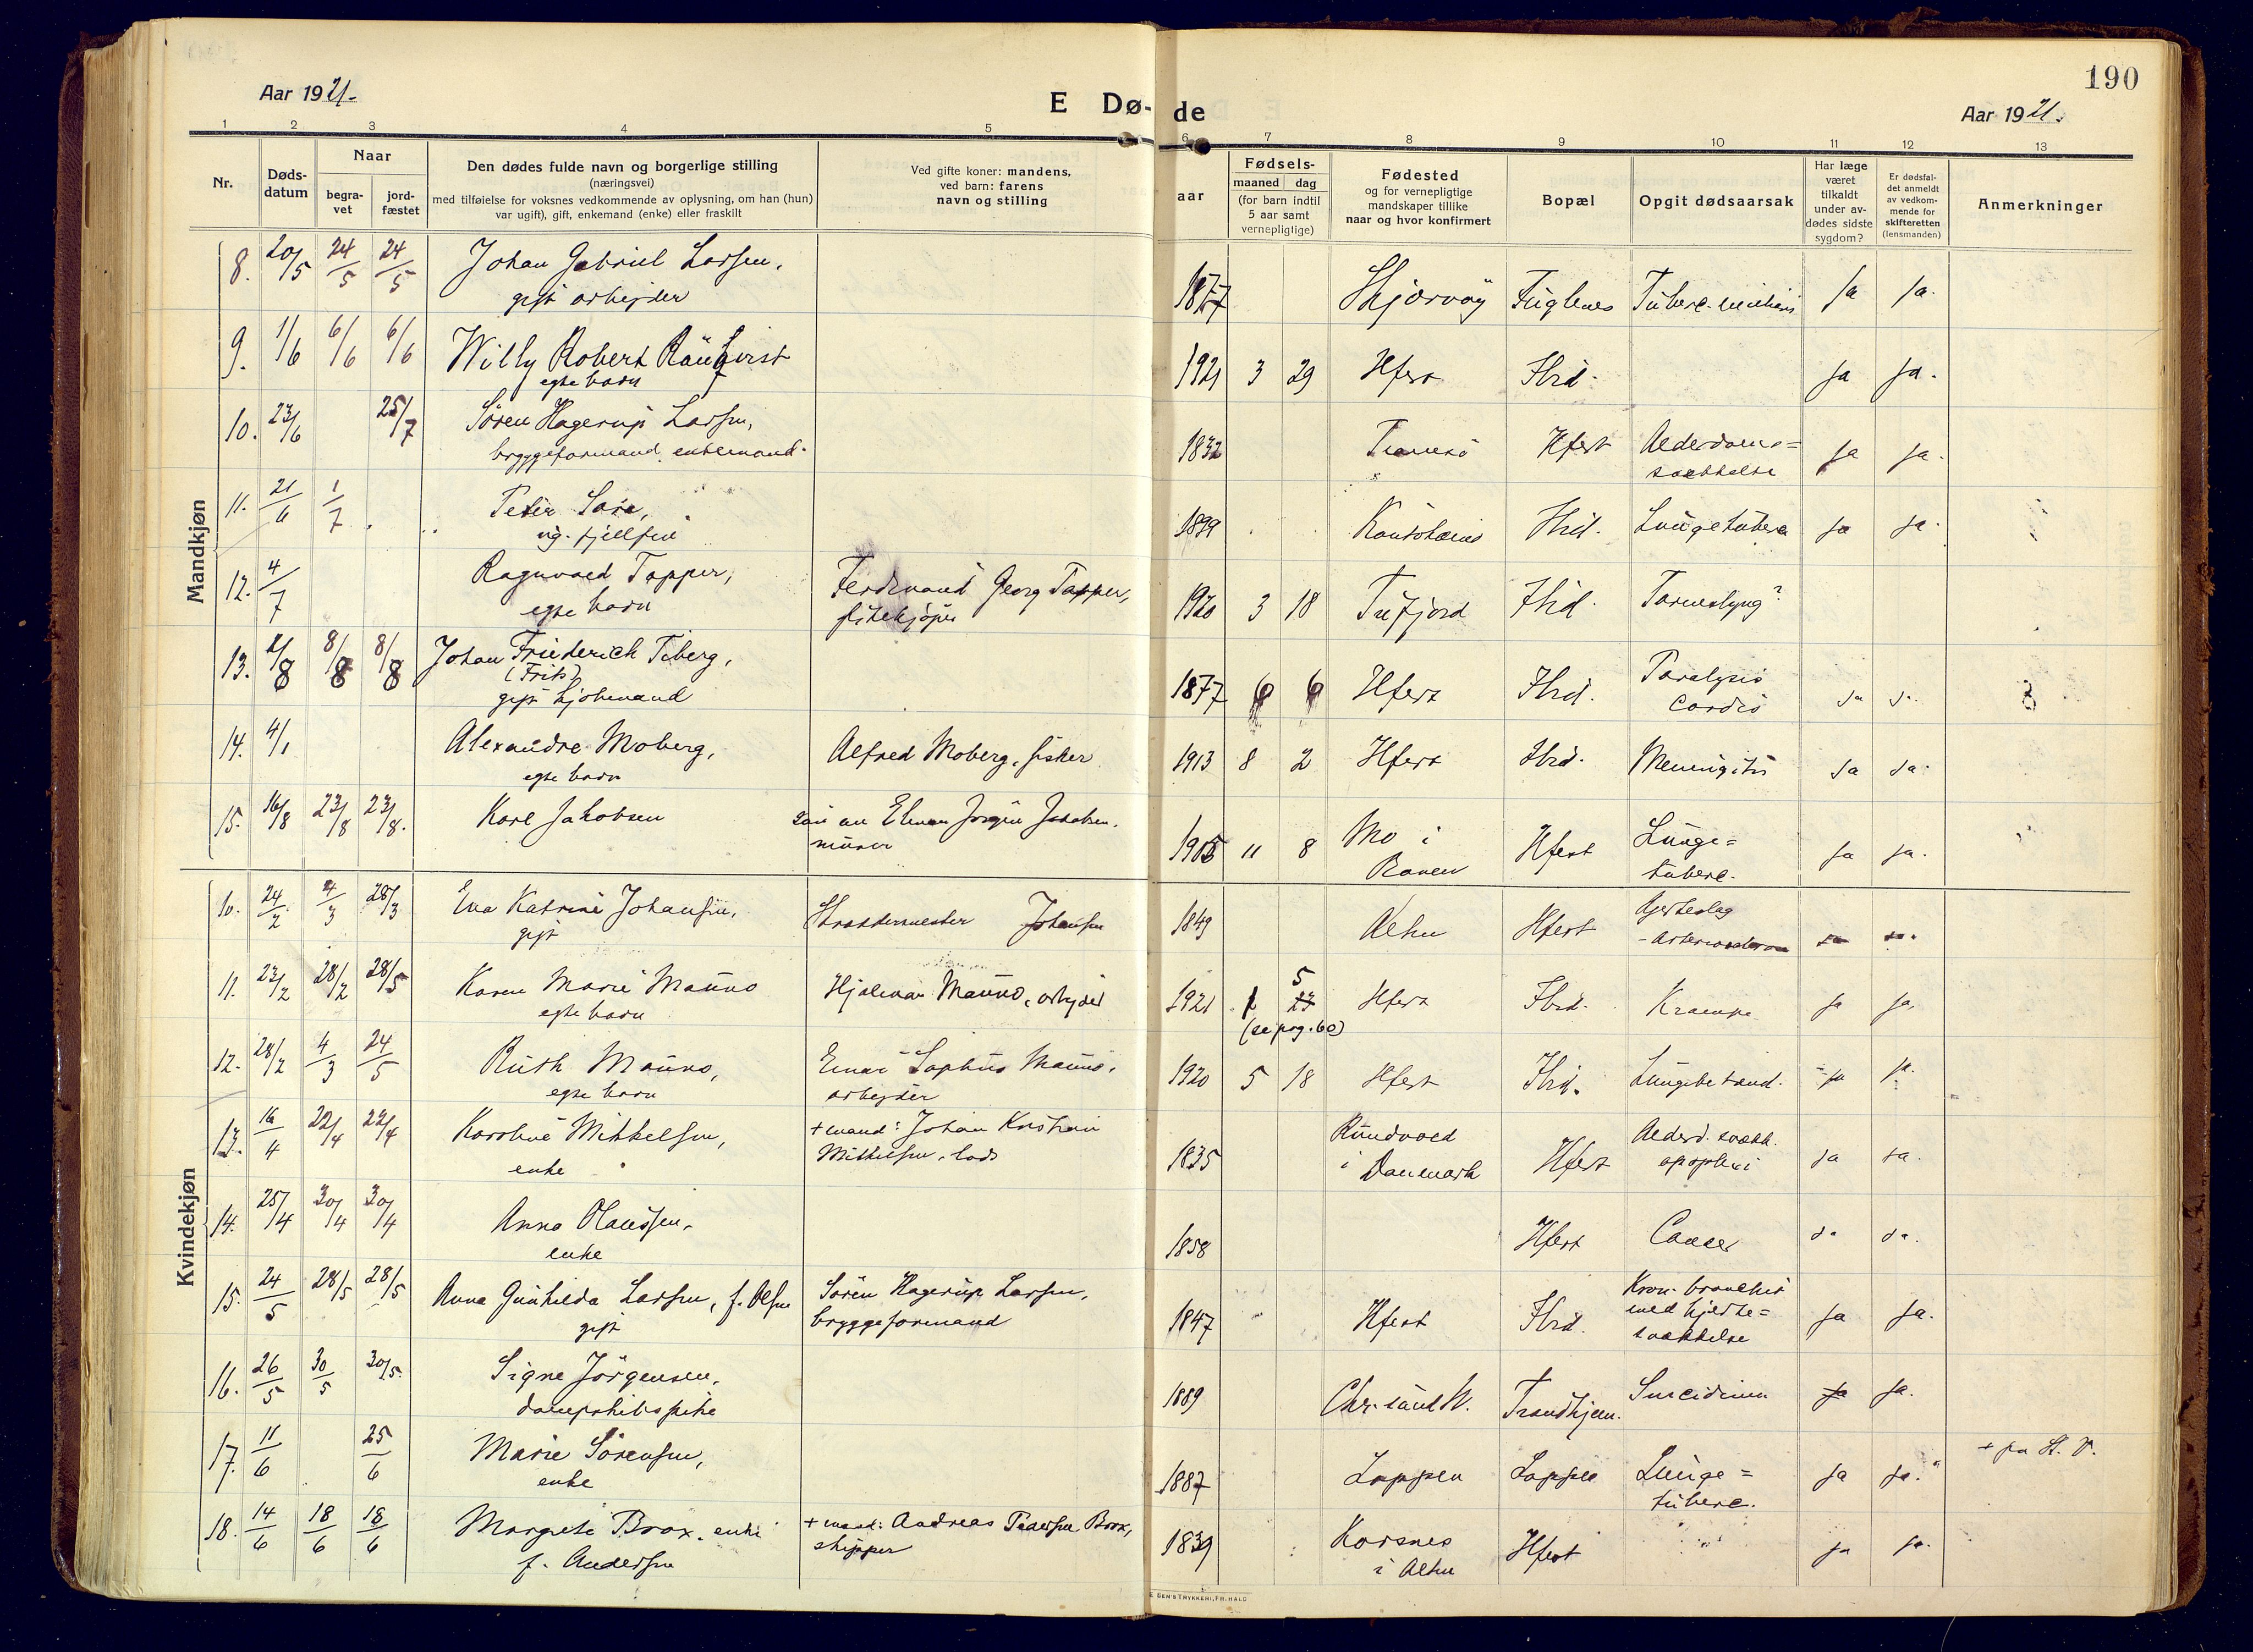 190
Aar 1921.
E Dø-
de
Aar 1921.
1 2 3 4 5 6 7 8 9 10 11 12 13
Nr.
Døds-
datum
Naar
begra-
vet
jord-
fæstet
Den dødes fulde navn og borgerlige stilling
(næringsvei)
med tilføielse for voksnes vedkommende av oplysning, om han (hun)
var ugift), gift, enkemand (enke) eller fraskilt
Ved gifte koner: mandens,
ved barn: farens
navn og stilling
aar
Fødsels-
maaned dag
(for barn indtil
5 aar samt
vernepligtige)
Fødested
og for vernepligtige
mandskaper tillike
naar og hvor konfirmert
Bopæl
Opgit dødsaarsak
Har læge
været
tilkaldt
under av-
dødes sidste
sygdom?
Er dødsfal-
det anmeldt
av vedkom-
mende for
skifteretten
(lensmanden)
Anmerkninger
Mandkjøn
8. 20/5 24/5 24/5 Johan Gabriel Larsen, 1877 Skjervøy Fuglenes Tuberc. miliaris ja ja.
gift arbejder
9. 1/6 6/6 6/6 Willy Robert 1921 3 29 Hfest Ibid. ja ja.
egte barn
10. 23/6 25/7 Sören Hagerup Larsen, 1832 Tromsö Hfest Alderdoms=
bryggeformand. enkemand. svækkelse ja ja.
11. 21/6 1/7 Peder Sara, 1899 Kautokeino Ibid. Lungetuberc ja ja.
ug. fjellfin
12. 4/7 Ragnvald Tapper, Ferdinand Georg Tapper, 1920 3 18 Tufjord Ibid.
egte barn fiskekjøper
13. 2/8 8/8 8/8 Johan Friederich Tiberg, 1877 6 6 Hfest Ibid. Paralysis
(Frits) cordis ja ja.
gift kjøbmand
14. 4/1 Alexandre Moberg, Alfred Moberg, fisker 1913 8 2 Hfest Ibid. Meningitis ja ja.
egte barn
15. 16/8 23/8 23/8. Karl Jakobsen Jørgen Jakobsen. 1905 11 8 Mo i Hfest Lunge=
murer Ranen tuberc. ja ja.
Kvindekjøn
10. 24/2 4/3 28/3 Eva Katrine Johansen, Skreddermester Johansen 1849 Alten Hfest Hjerteslag
gift ja ja.
11. 23/2 28/2 28/5 Karen Marie Mauno Hjalmar Mauno, arbejder 1921 1 5 23 Hfest Ibid. Krampe ja ja.
egte barn (se pag. 60)
12. 28/2 4/3 24/5 Ruth Mauno, Einar Sophus Mauno, 1920 5 18 Hfest Ibid. Lungebetænd. ja ja.
egte barn arbejder
13. 16/4 22/4 22/4 Karoline Mikkelsen, + mand: Johan Kristian 1835 Hfest Alderd. svækk.
enke Mikkelsen, lods i Danmark apoplexi ja ja.
14. 25/4 30/4 30/4 Anna Olaussen. 1858 Hfest Cancer ja ja.
enke
15. 24/5 28/5 28/5 Anna Gunhilda Larsen, f. Olsen Sören Hagerup Larsen, 1847 Hfest Ibid. Kron. bronchit
gift bryggeformand med hjerte=
svækkelse ja ja.
16. 26/5 30/5 30/5. Signe Jörgensen, 1889 Chr.sund N. Trondhjem. Suicidium ja ja.
dampskibspike
17. 11/6 25/6 Marie Sörensen, 1887 Loppen Loppen Lunge=
enke tuberc. ja ja. + paa St. V.
18. 14/6 18/6 18/6 Margrete Brox, enke + mand: Andreas Pedersen Brox, 1839 Korsnes Hfest ja ja.
f. Andersen skipper i Alten